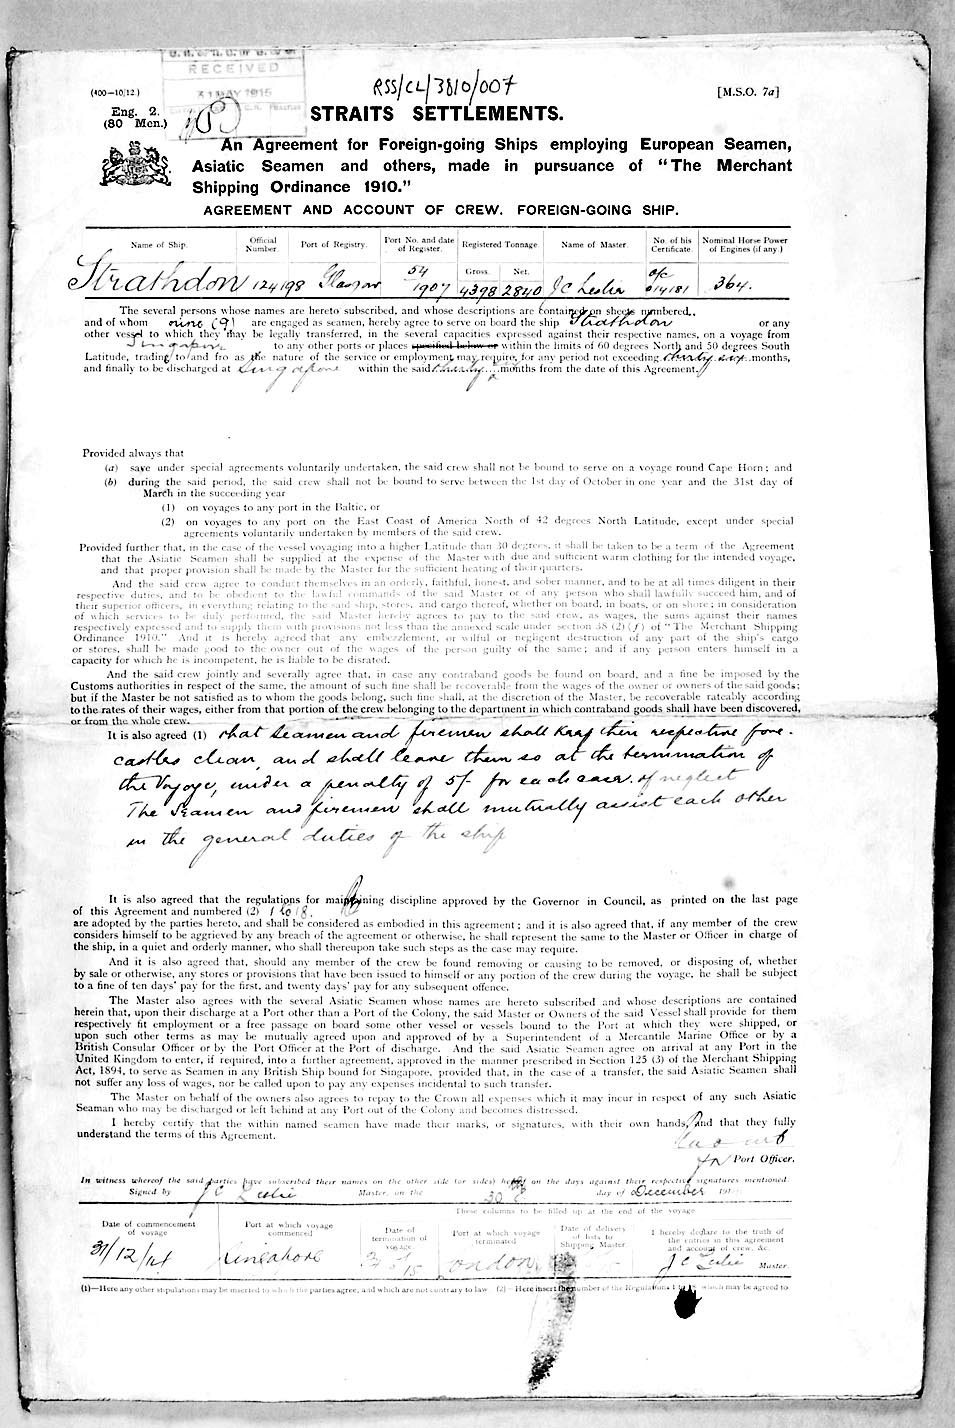 RECEIVED
31 MAY 1915
RSS/CL/3810/007
(400—10/12)
[M.S.O. 7a]
Eng. 2.
(80 Men.)
STRAITS SETTLEMENTS.
An Agreement for Foreign-going Ships employing European Seamen,
Asiatic Seamen and others, made in pursuance of "The Merchant
Shipping Ordinance 1910."
AGREEMENT AND ACCOUNT OF CREW. FOREIGN-GOING SHIP.
Name of Ship. Official Number. Port of Registry. Port No. and date of Register. Registered Tonnage. Name of Master. No. of his Certificate. Nominal Horse Power of Engines (if any.)
Gross. Net.
Strathdon 124198 Glasgow 54/1907 4398 2840 J C Leslie 014181 364.
The several persons whose names are hereto subscribed, and whose descriptions are contained on sheets numbered
and of whom nine (9) are engaged as seamen, hereby agree to serve on board the ship Strathdon or any
other vessel to which they may be legally transferred, in the several capacities expressed against their respective names, on a voyage from
Singapore to any other ports or places specified below or within the limits of 60 degrees North and 50 degrees South
Latitude, trading to and fro as the nature of the service or employment may require, for any period not exceeding thirty six months,
and finally to be discharged at Singapore within the said thirty six months from the date of this Agreement.
Provided always that
(a) save under special agreements voluntarily undertaken, the said crew shall not be bound to serve on a voyage round Cape Horn; and
(b) during the said period, the said crew shall not be bound to serve between the 1st day of October in one year and the 31st day of
March in the succeeding year
(1) on voyages to any port in the Baltic, or
(2) on voyages to any port on the East Coast of America North of 42 degrees North Latitude, except under special
agreements voluntarily undertaken by members of the said crew.
Provided further that, in the case of the vessel voyaging into a higher Latitude than 30 degrees, it shall be taken to be a term of the Agreement
that the Asiatic Seamen shall be supplied at the expense of the Master with due and sufficient warm clothing for the intended voyage,
and that proper provision shall be made by the Master for the sufficient heating of their quarters.
And the said crew agree to conduct themselves in an orderly, faithful, honest, and sober manner, and to be at all times diligent in their
respective duties, and to be obedient to the lawful commands of the said Master or of any person who shall lawfully succeed him, and of
their superior officers, in everything relating to the said ship, stores, and cargo thereof, whether on board, in boats, or on shore; in consideration
of which services to be duly performed, the said Master hereby agrees to pay to the said crew, as wages, the sums against their names
respectively expressed and to supply them with provisions not less than the annexed scale under section 38 (2) (f) of "The Merchant Shipping
Ordinance 1910." And it is hereby agreed that any embezzlement, or wilful or negligent destruction of any part of the ship's cargo
or stores, shall be made good to the owner out of the wages of the person guilty of the same; and if any person enters himself in a
capacity for which he is incompetent, he is liable to be disrated.
And the said crew jointly and severally agree that, in case any contraband goods be found on board, and a fine be imposed by the
Customs authorities in respect of the same, the amount of such fine shall be recoverable from the wages of the owner or owners of the said goods;
but if the Master be not satisfied as to whom the goods belong, such fine shall, at the discretion of the Master, be recoverable rateably according
to the rates of their wages, either from that portion of the crew belonging to the department in which contraband goods shall have been discovered,
or from the whole crew.
It is also agreed (1) that Seamen and firemen shall keep their respective fore-
castles clean, and shall leave them so at the termination of
the Voyage, under a penalty of 5/- for each case of neglect
The Seamen and firemen shall mutually assist each other
in the general duties of the ship
It is also agreed that the regulations for maintaining discipline approved by the Governor in Council, as printed on the last page
of this Agreement and numbered (2) 1 to 18.
are adopted by the parties hereto, and shall be considered as embodied in this agreement; and it is also agreed that, if any member of the crew
considers himself to be aggrieved by any breach of the agreement or otherwise, he shall represent the same to the Master or Officer in charge of
the ship, in a quiet and orderly manner, who shall thereupon take such steps as the case may require.
And it is also agreed that, should any member of the crew be found removing or causing to be removed, or disposing of, whether
by sale or otherwise, any stores or provisions that have been issued to himself or any portion of the crew during the voyage, he shall be subject
to a fine of ten days' pay for the first, and twenty days' pay for any subsequent offence.
The Master also agrees with the several Asiatic Seamen whose names are hereto subscribed and whose descriptions are contained
herein that, upon their discharge at a Port other than a Port of the Colony, the said Master or Owners of the said Vessel shall provide for them
respectively fit employment or a free passage on board some other vessel or vessels bound to the Port at which they were shipped, or
upon such other terms as may be mutually agreed upon and approved of by a Superintendent of a Mercantile Marine Office or by a
British Consular Officer or by the Port Officer at the Port of discharge. And the said Asiatic Seamen agree on arrival at any Port in the
United Kingdom to enter, if required, into a further agreement, approved in the manner prescribed in Section 125 (3) of the Merchant Shipping
Act, 1894, to serve as Seamen in any British Ship bound for Singapore, provided that, in the case of a transfer, the said Asiatic Seamen shall
not suffer any loss of wages, nor be called upon to pay any expenses incidental to such transfer.
The Master on behalf of the owners also agrees to repay to the Crown all expenses which it may incur in respect of any such Asiatic
Seaman who may be discharged or left behind at any Port out of the Colony and becomes distressed.
I hereby certify that the within named seamen have made their marks, or signatures, with their own hands, and that they fully
understand the terms of this Agreement.
Port Officer.
In witness whereof the said parties have subscribed their names on the other side (or sides) hereof on the days against their respective signatures mentioned
Signed by J C Leslie Master, on the 30th day of December 191
These columns to be filled up at the end of the voyage
Date of commencement of voyage Port at which voyage commenced Date of termination of voyage Port at which voyage terminated Date of delivery of lists to Shipping Master. I hereby declare to the truth of the entries in this agreement and account of crew, &c.
31/12/14 Singapore London J C Leslie Master.
(1)—Here any other stipulations may be inserted to which the parties agree, and which are not contrary to law (2)—Here insert the number of the Regulations 1 to 18, which may be agreed to